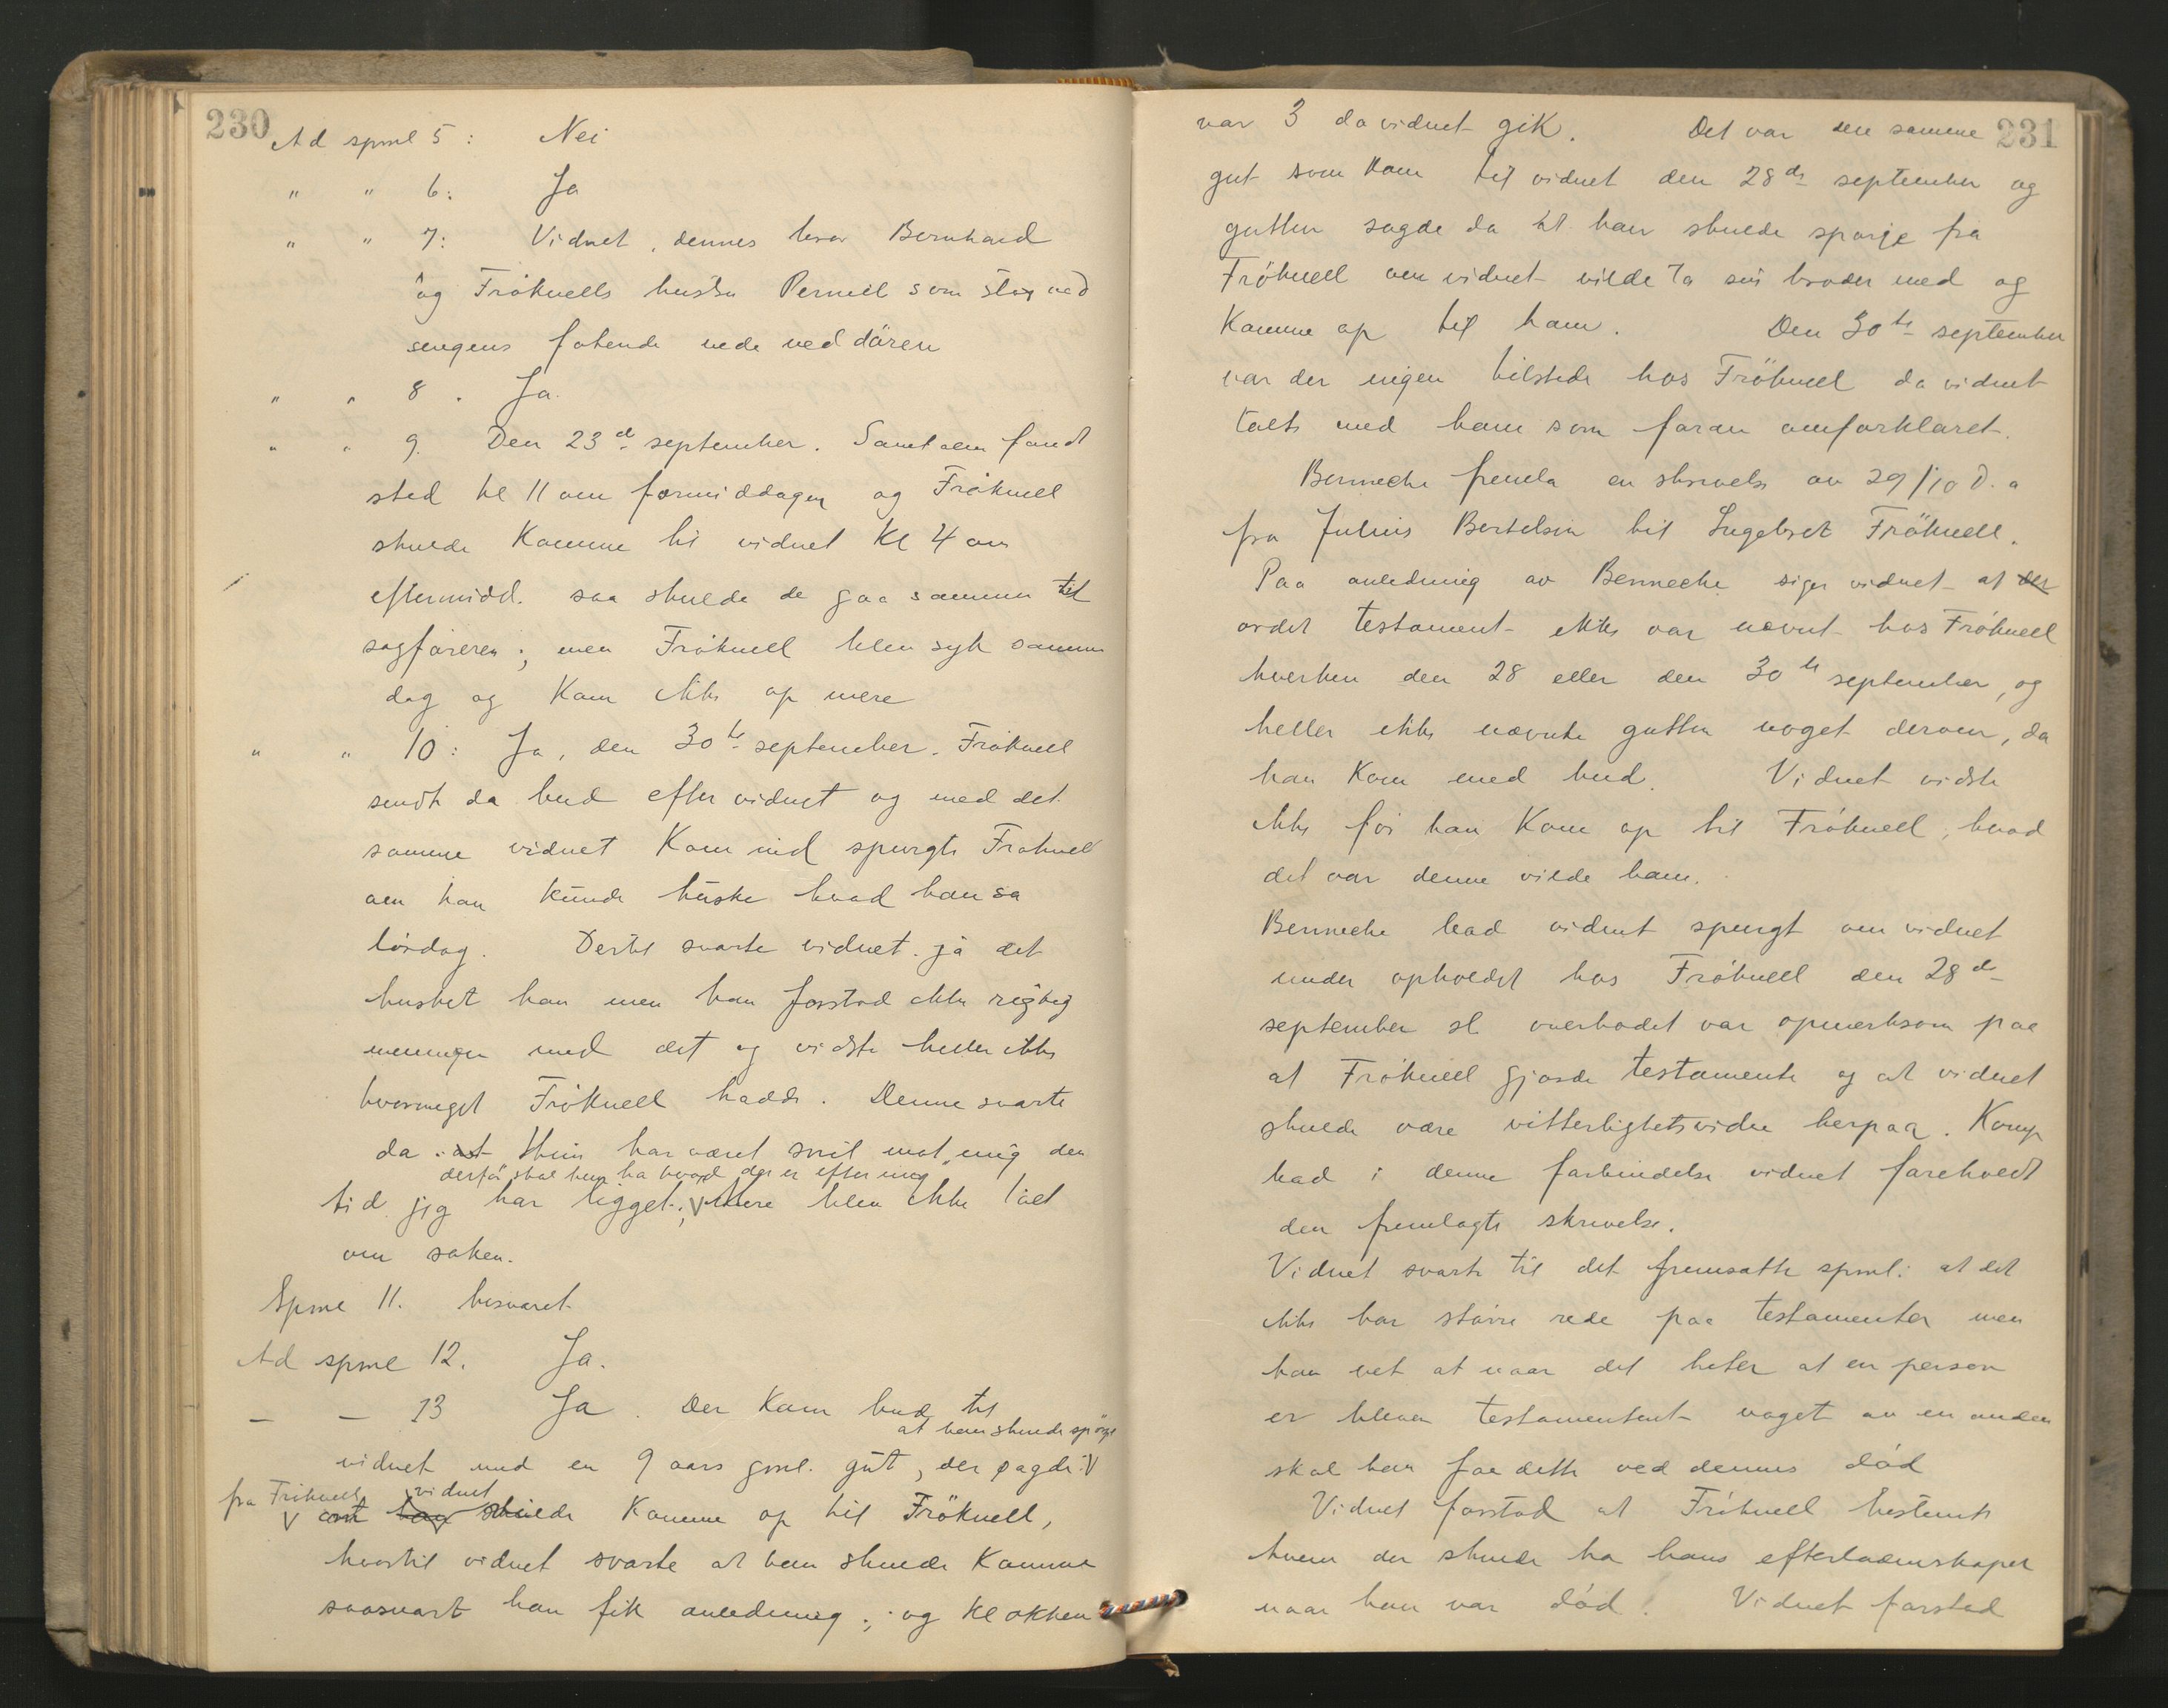 230
Ad spml 5: Nei
" " 6: Ja
" " 7: Vidnet, dennes bror Bernhard
og Frøknells hustru Pernil som stod ved
sengens fotende nede ved døren
" " 8. Ja.
" " 9. Den 23de september. Samtalen fandt
sted kl 11 om formiddagen og Frøknell
skulde komme til vidnet kl 4 om
eftermidd. saa skulde de gaa sammen til
sagføreren; men Frøknell blev syk samme
dag og kom ikke op mere
" " 10: Ja, den 30te september. Frøknell
sendte da bud efter vidnet og med det
samme vidnet kom ind spurgte Frøknell
om han kunde huske hvad han sa
lørdag. Dertil svarte vidnet. ja det
husket han men han forstod ikke rigtig
meningen med det og vidste heller ikke
hvormeget Frøknell hadde. Denne svarte
da: at har været snil mot mig den
derfor skal ha hvad der er efter mig
tid jeg har ligget; mere blev ikke talt
om saken.
Spml 11. besvaret
Ad spml 12. Ja.
— — 13 Ja. Der kom bud til
at han skulde spørge
vidnet med en 9 aars gml. gut, der sagde:
fra Frøknell vidnet
om han skulde komme op til Frøknell,
hvortil vidnet svarte at han skulde komme
saasnart han fik anledning; og klokken
231
var 3 da vidnet gik. Det var den samme
gut som kom til vidnet den 28de september og
gutten sagde da at han skulde spørge fra
Frøknell om vidnet vilde ta sin broder med og
komme op til ham. Den 30te september
var der ingen tilstede hos Frøknell da vidnet
talte med ham som foran omforklaret.
Benneche fremla en skrivelse av 29/10 d. a
fra Julius Bertelsen til Ingebret Frøknell.
Paa anledning av Benneche siger vidnet at der
ordet testament ikke var nævnt hos Frøknell
hverken den 28 eller den 30te september, og
heller ikke nævnte gutten noget derom, da
han kom med bud. Vidnet vidste
ikke før han kom op til Frøknell, hvad
det var denne vilde ham.
Benneche bad vidnet spurgt om vidnet
under opholdet hos Frøknell den 28de
september sl overhodet var opmerksom paa
at Frøknell gjorde testamente og at vidnet
skulde være vitterlighetsvidne herpaa. Komp
bad i denne forbindelse vidnet foreholdt
den fremlagte skrivelse.
Vidnet svarte til det fremsatte spml: at det
ikke har større rede paa testamenter men
han vet at naar det heter at en person
er bleven testamentert noget av en anden
skal han faa dette ved dennes død
Vidnet forstod at Frøknell bestemte
hvem der skulde ha hans efterladenskaper
naar han var død! Vidnet forstod